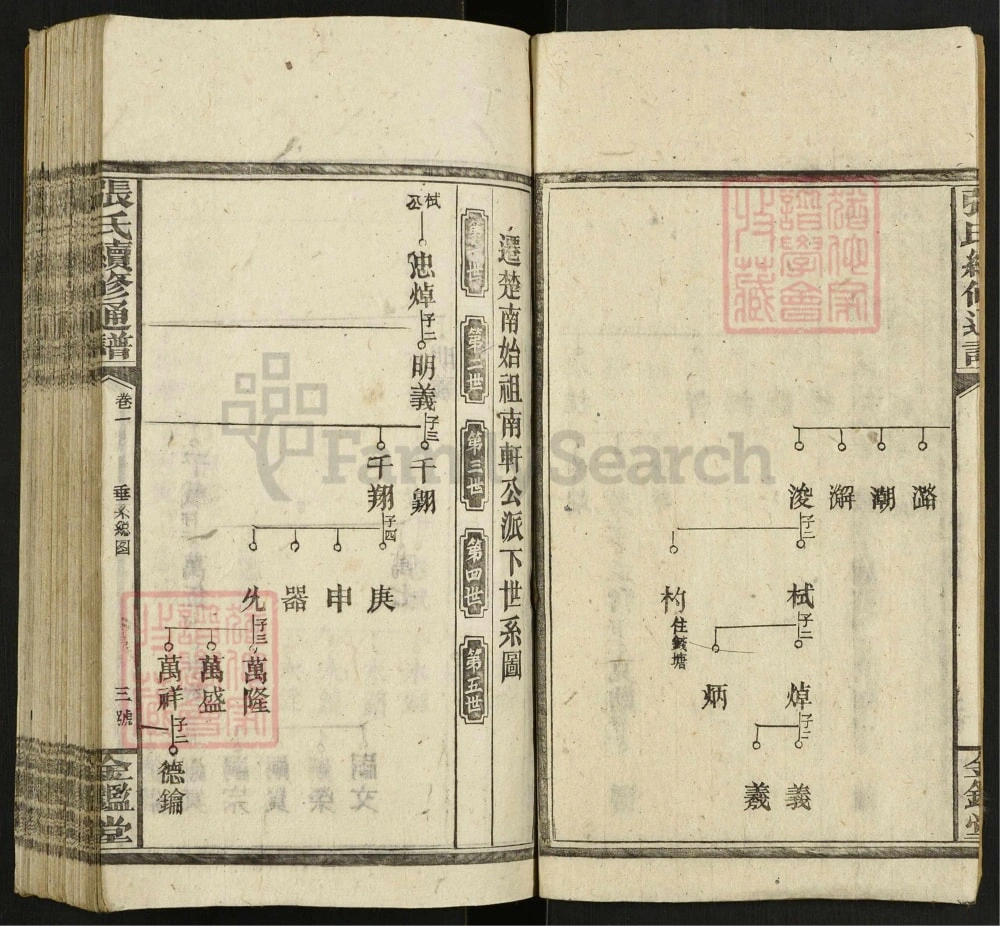 潞
潮
澥
浚 子二
栻 子二
杓 住錢塘
焯 子二
炳
義
羲
遷楚南始祖南軒公派下世系圖
第二世
第三世
第四世
第五世
栻公
忠焯 子二
明義 子三
千翱
千翔 子四
庚
申
器
先 子三
萬隆
萬盛
萬祥 子二
德鑰
張氏續修通譜
卷一
垂系總圖
三號
金鑑堂
FamilySearch